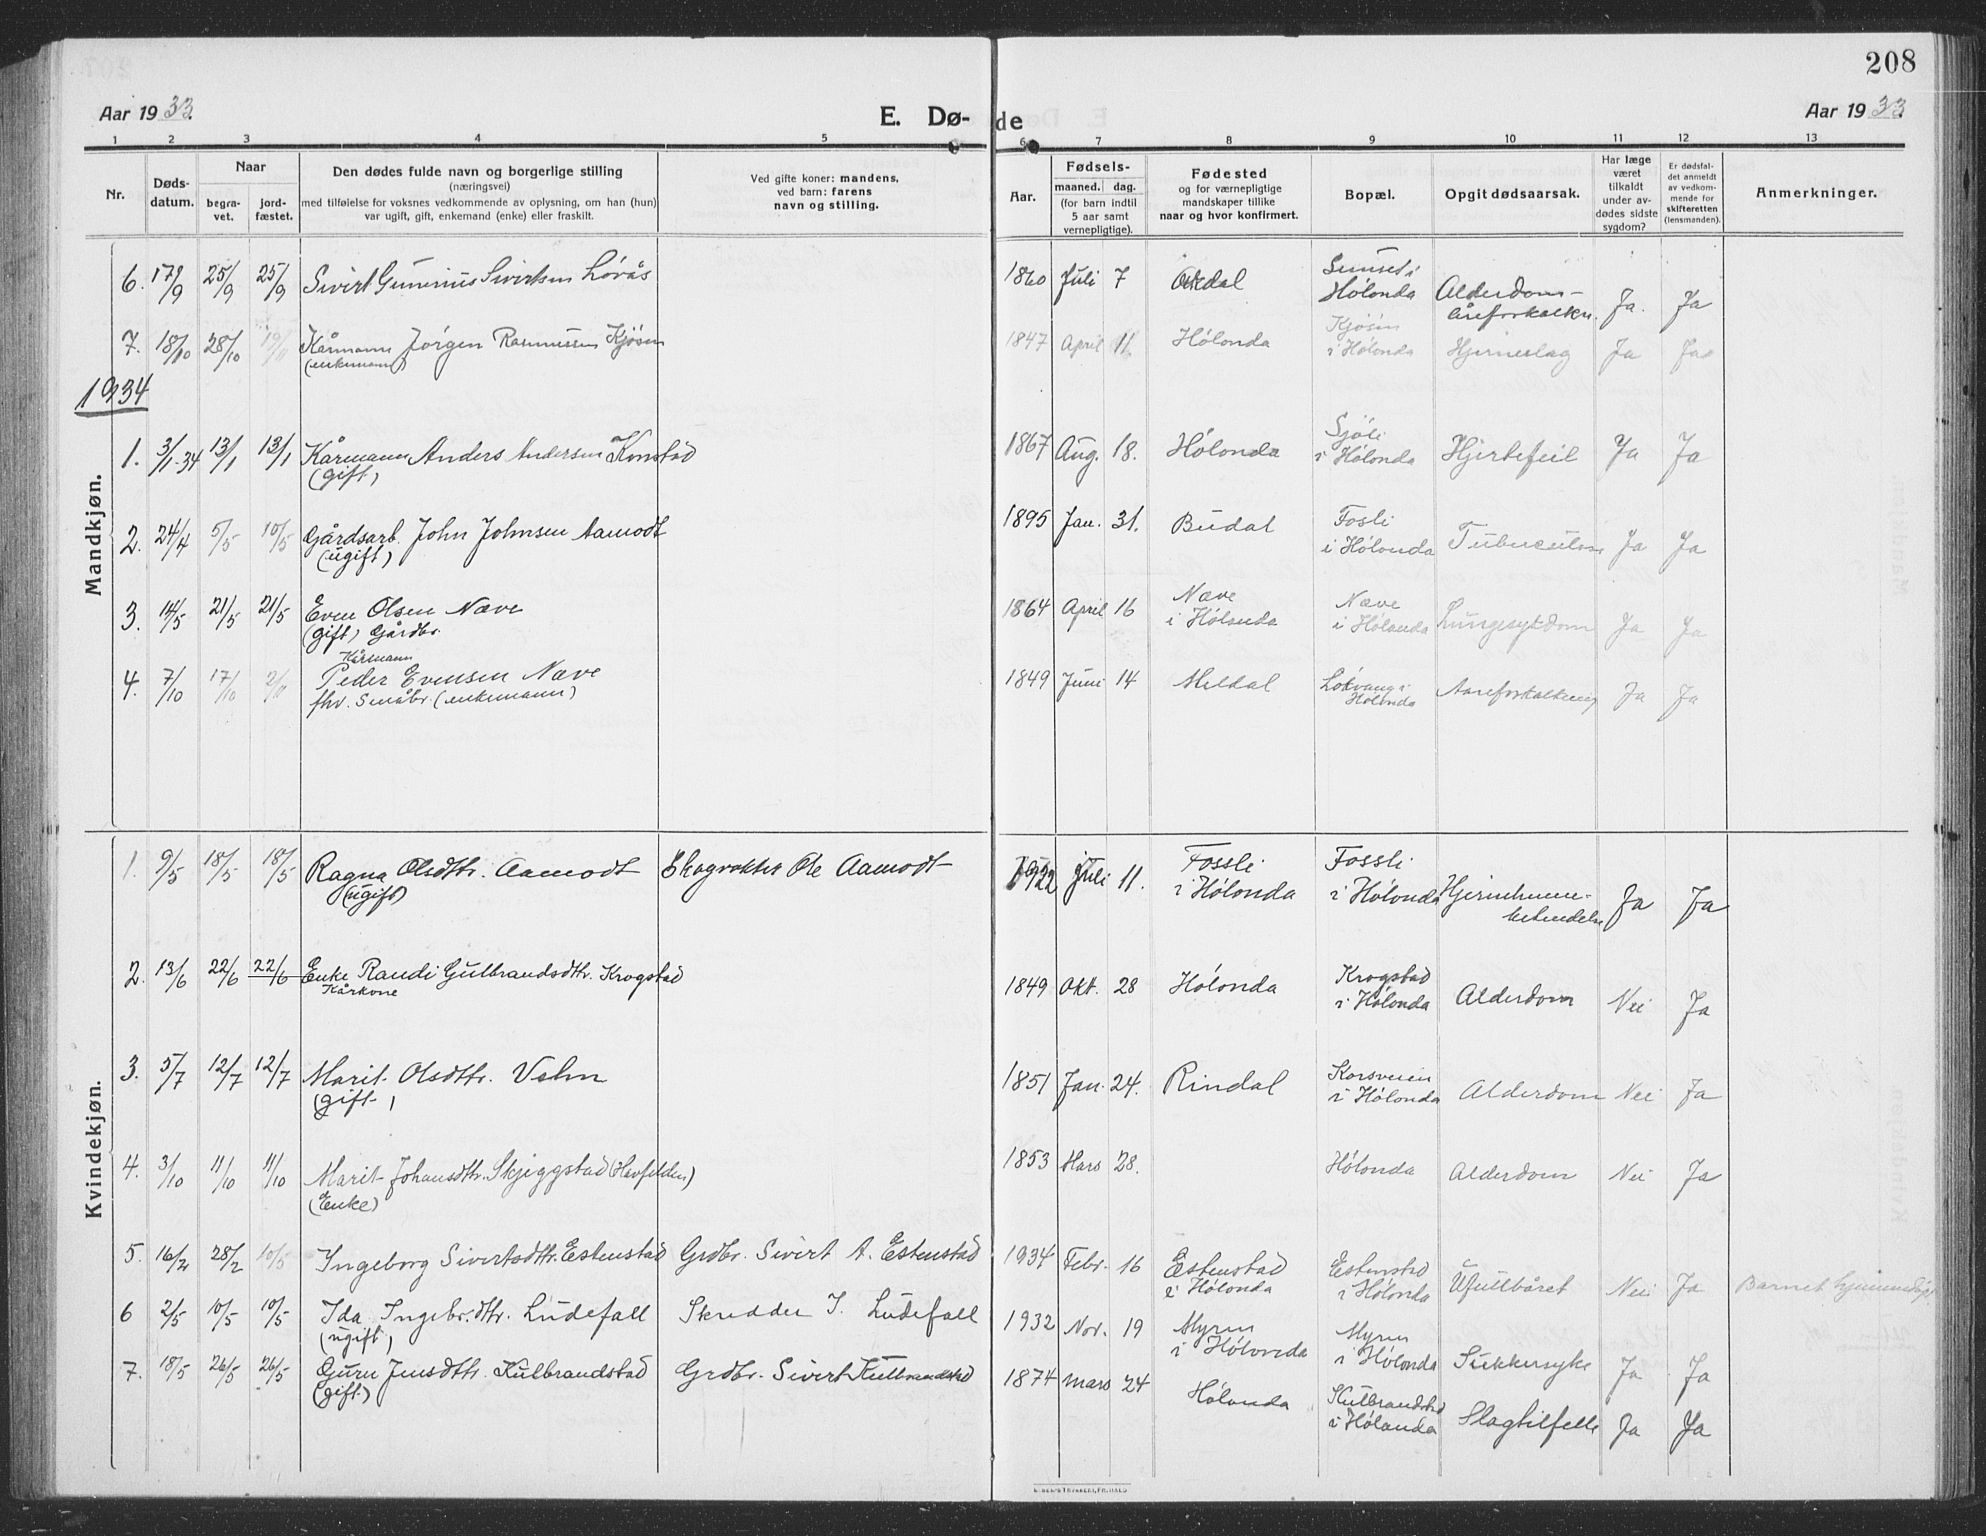 208
Aar 1933.
E. Dø-
de
Aar 1933.
1 2 3 4 5 6 7 8 9 10 11 12 13
Nr.
Døds-
datum.
Naar
begra-
vet.
jord-
fæstet.
Den dødes fulde navn og borgerlige stilling
(næringsvei)
med tilføielse for voksnes vedkommende av oplysning, om han (hun)
var ugift, gift, enkemand (enke) eller fraskilt.
Ved gifte koner: mandens,
ved barn: farens
navn og stilling.
Aar.
Fødsels-
maaned. dag.
(for barn indtil
5 aar samt
vernepligtige).
Fødested
og for værnepligtige
mandskaper tillike
naar og hvor konfirmert.
Bopæl.
Opgit dødsaarsak.
Har læge
været
tilkaldt
under av-
dødes sidste
sygdom?
Er dødsfal-
det anmeldt
av vedkom-
mende for
skifteretten
(lensmanden).
Anmerkninger.
Mandkjøn.
6. 17/9 25/9 25/9 Sivert Gunerius Sivertsen Lørås 1860 Juli 7 Hølonda Alderdom-
åreforkalkn. Ja. Ja
7. 18/10 28/10 Kårmann Jørgen Rasmussen Kjøsen
(enkemann) 1847 April 11 Hølonda Kjøsen
i Hølonda Hjerneslag Ja Ja
1934
1. 3/1-34 13/1 13/1 Kårmann Anders Andersen Konstad
(gift) 1867 Aug. 18. Hølonda Sjøli
i Hølonda Hjertefeil Ja Ja
2. 24/4 5/5 10/5 Gårdsarb. John Johnsen Aamodt
(ugift) 1895 Jan. 31. Budal Fosli
i Hølonda Ja Ja
3. 14/5 21/5 21/5 Even Olsen Næve
(gift) Gårdbr. 1864 April 16 Næve
i Hølonda Næve
i Hølonda Lungesykdom Ja Ja
Kårmann
4. 7/10 17/10 Peder Evensen Næve
fhv. Småbr. (enkemann) 1849 Juni 14 Meldal Løkvang i
Hølonda Aareforkalkning Ja Ja
Kvindekjøn.
1. 9/5 18/5 18/5 Ragna Olsdtr. Aamodt
(ugift) Skogvokter Ole Aamodt 1922 Juli 11. Fossli
i Hølonda Fossli
i Hølonda Hjernehinne-
betendelse Ja Ja
2. 13/6 22/6 22/6 Enke Randi Gulbrandsdtr. Krogstad
Kårkone 1849 Okt. 28 Hølonda Krogstad
i Hølonda Alderdom Nei Ja
3. 5/7 12/7 12/7 Marit Olsdtr. Vehn
(gift) 1851 Jan. 24. Rindal Korsveien
i Hølonda Alderdom Nei Ja
4. 3/10 11/10 11/10 Marit Johansdtr. Skjeggstad
(Enke) 1853 Mars 28. Hølonda Alderdom Nei Ja
5. 16/2 28/2 10/5 Ingeborg Sivertsdtr. Estenstad Grdbr. Sivert A. Estenstad 1934 Febr. 16 Estenstad
i Hølonda Estenstad
i Hølonda Ufullbåret Nei Ja Barnet hjemmedøpt
6 2/5 10/5 10/5 Ida Ingebr.dtr. Ludefall
(ugift) Skredder I. Ludefall 1932 Nov. 19 Myren
i Hølonda Myren
i Hølonda Sukkersyke Ja Ja
7. 18/5 26/5 26/5 Guru Jensdtr. Kulbrandstad
(gift) Grdbr. Sivert Kulbrandstad 1874 Mars 24 Hølonda Kulbrandstad
i Hølonda Slagtilfelle Ja Ja